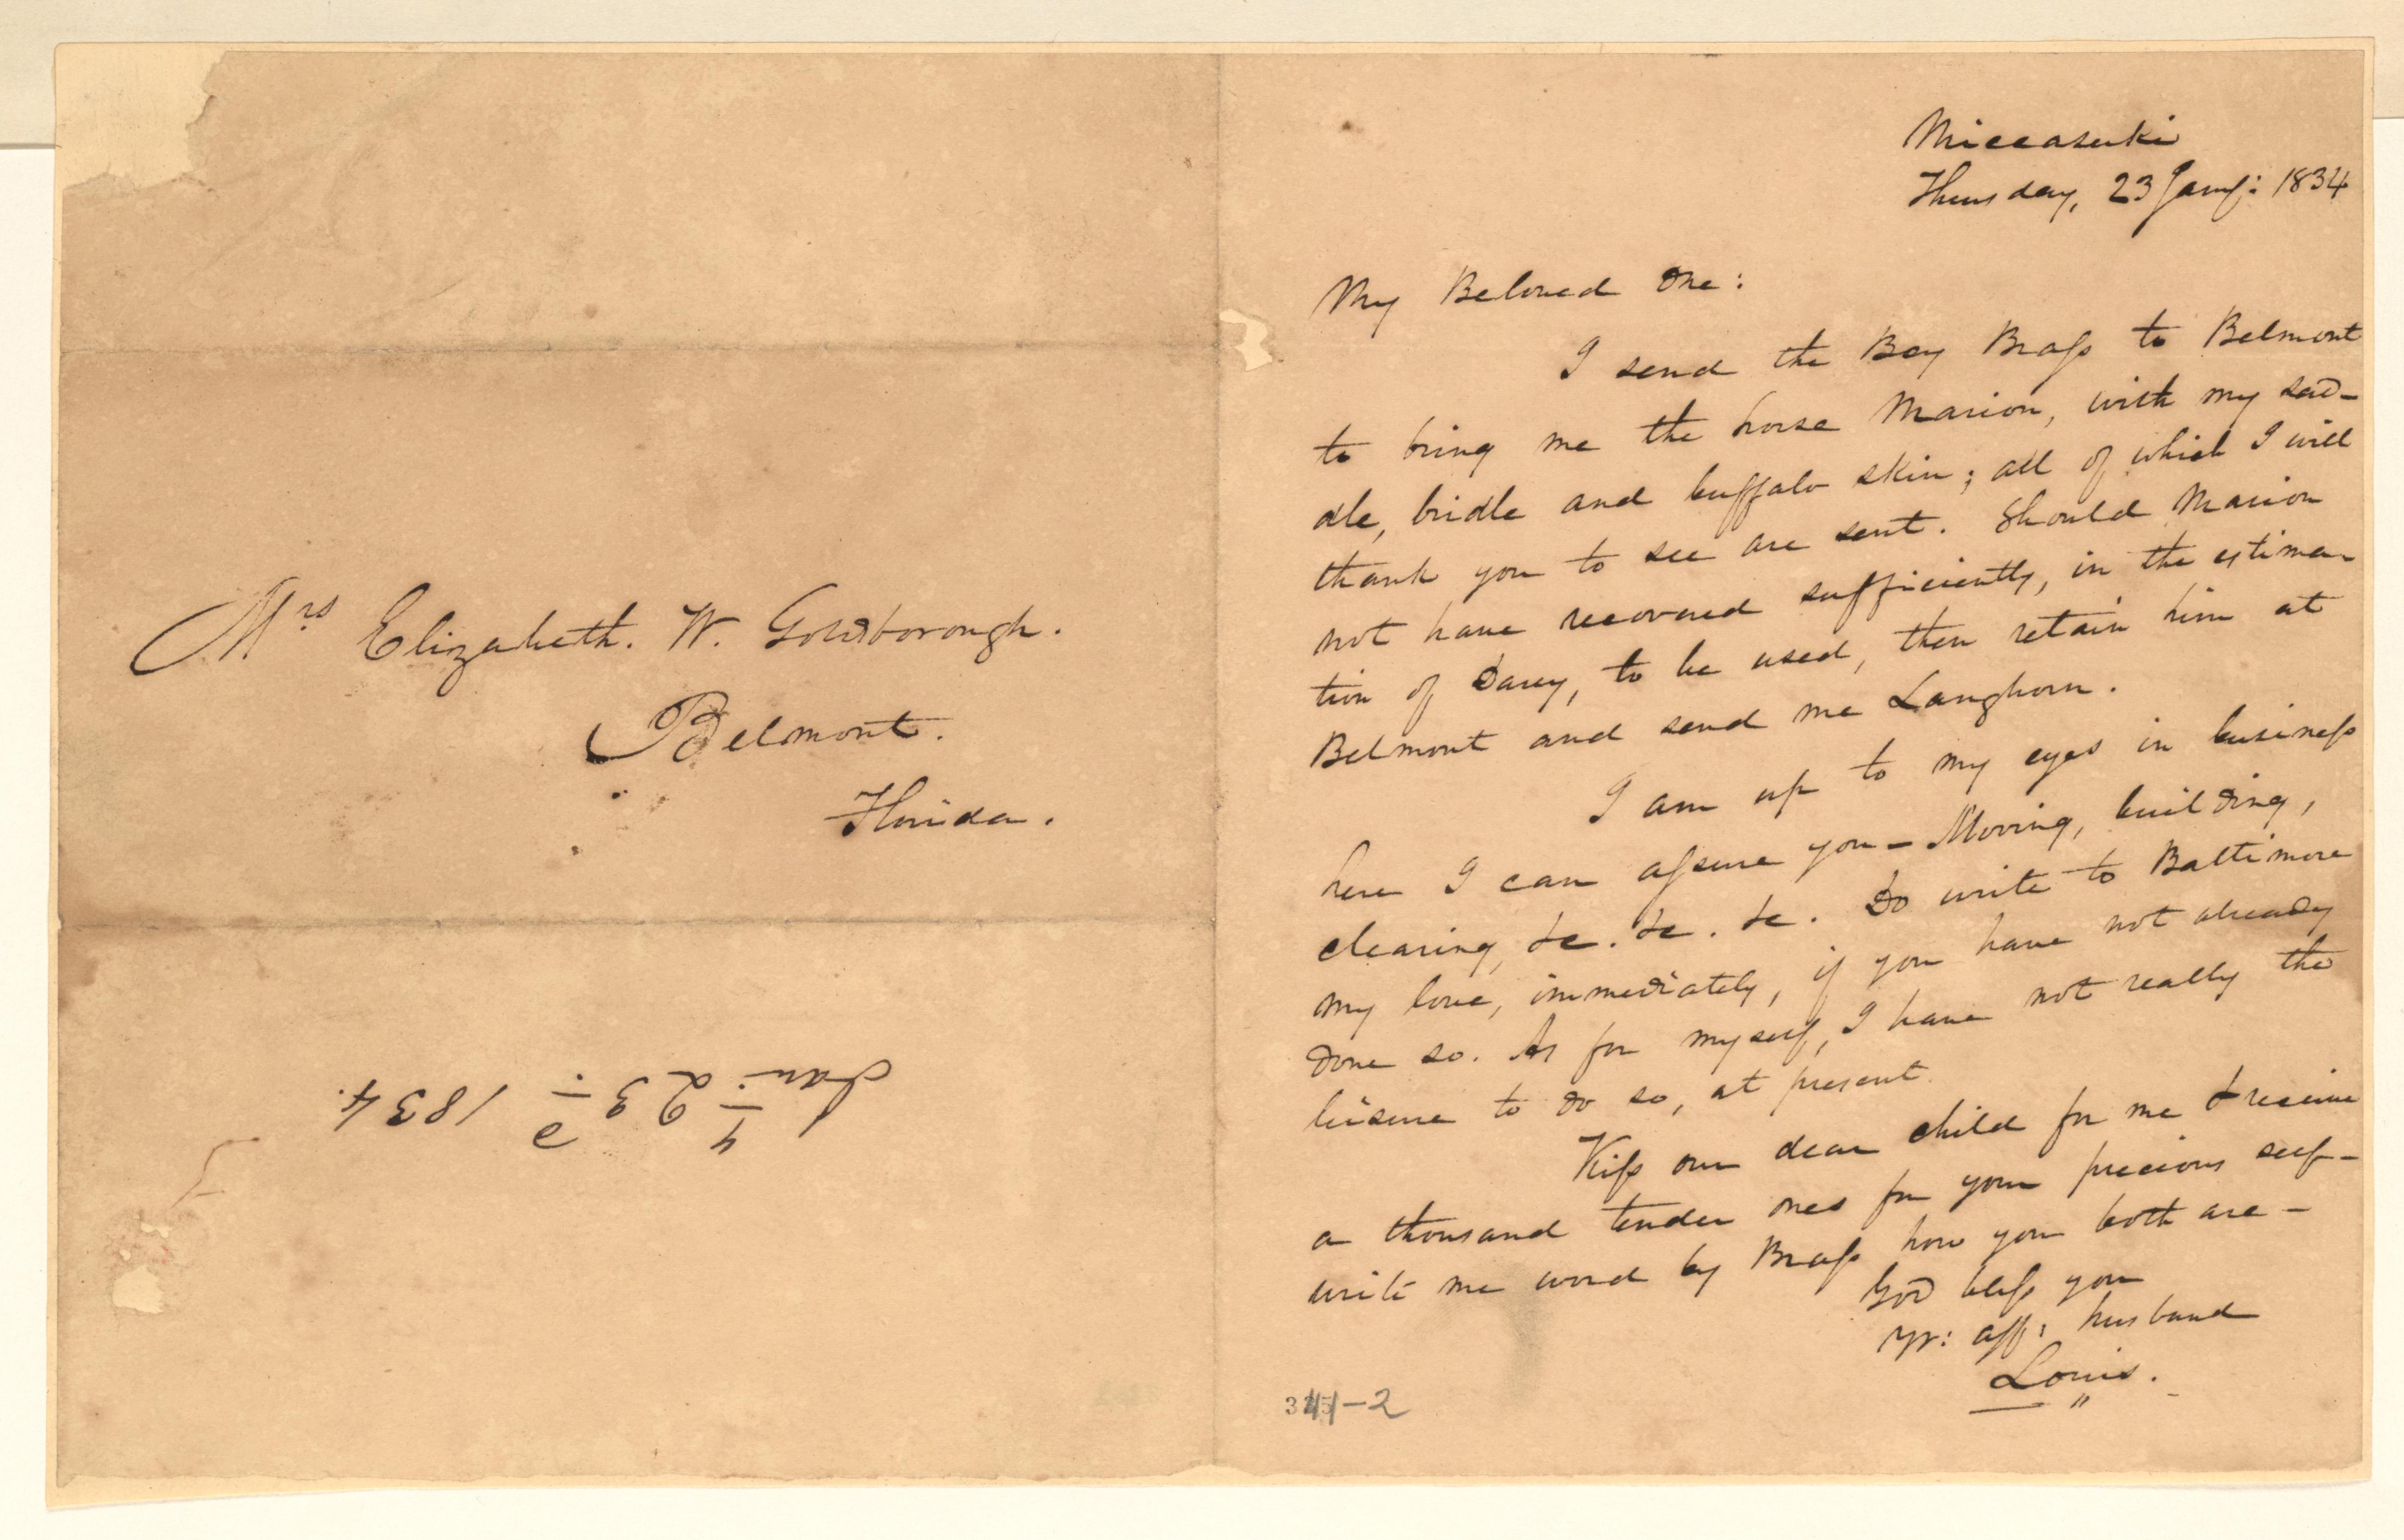 Mrs Elizabeth. W. Goldsborough.
Belmont.
Florida.
Jany 23d 1834.
Miccasuki
Thursday, 23 Jany: 1834
My Beloved One:
I send the Boy Brass to Belmont
to bring me the horse Marion, with my sad-
dle, bridle and buffalo skin; all of which I will
thank you to see are sent. Should Marion
not have recovered sufficiently, in the estima-
tion of Darcy, to be used, then retain him at
Belmont and send me Langhorn.
I am up to my eyes in business
here I can assure you - Moving, building,
clearing, &c. &c. &c. Do write to Baltimore
my love, immediately, if you have not already
done so. As for myself, I have not really the
leisure to do so, at present.
Kiss our dear child for me & receive
a thousand tender ones for your precious self -
write me word by Brass how you both are -
God bless you
Yr: aff: husband
Louis.
-2